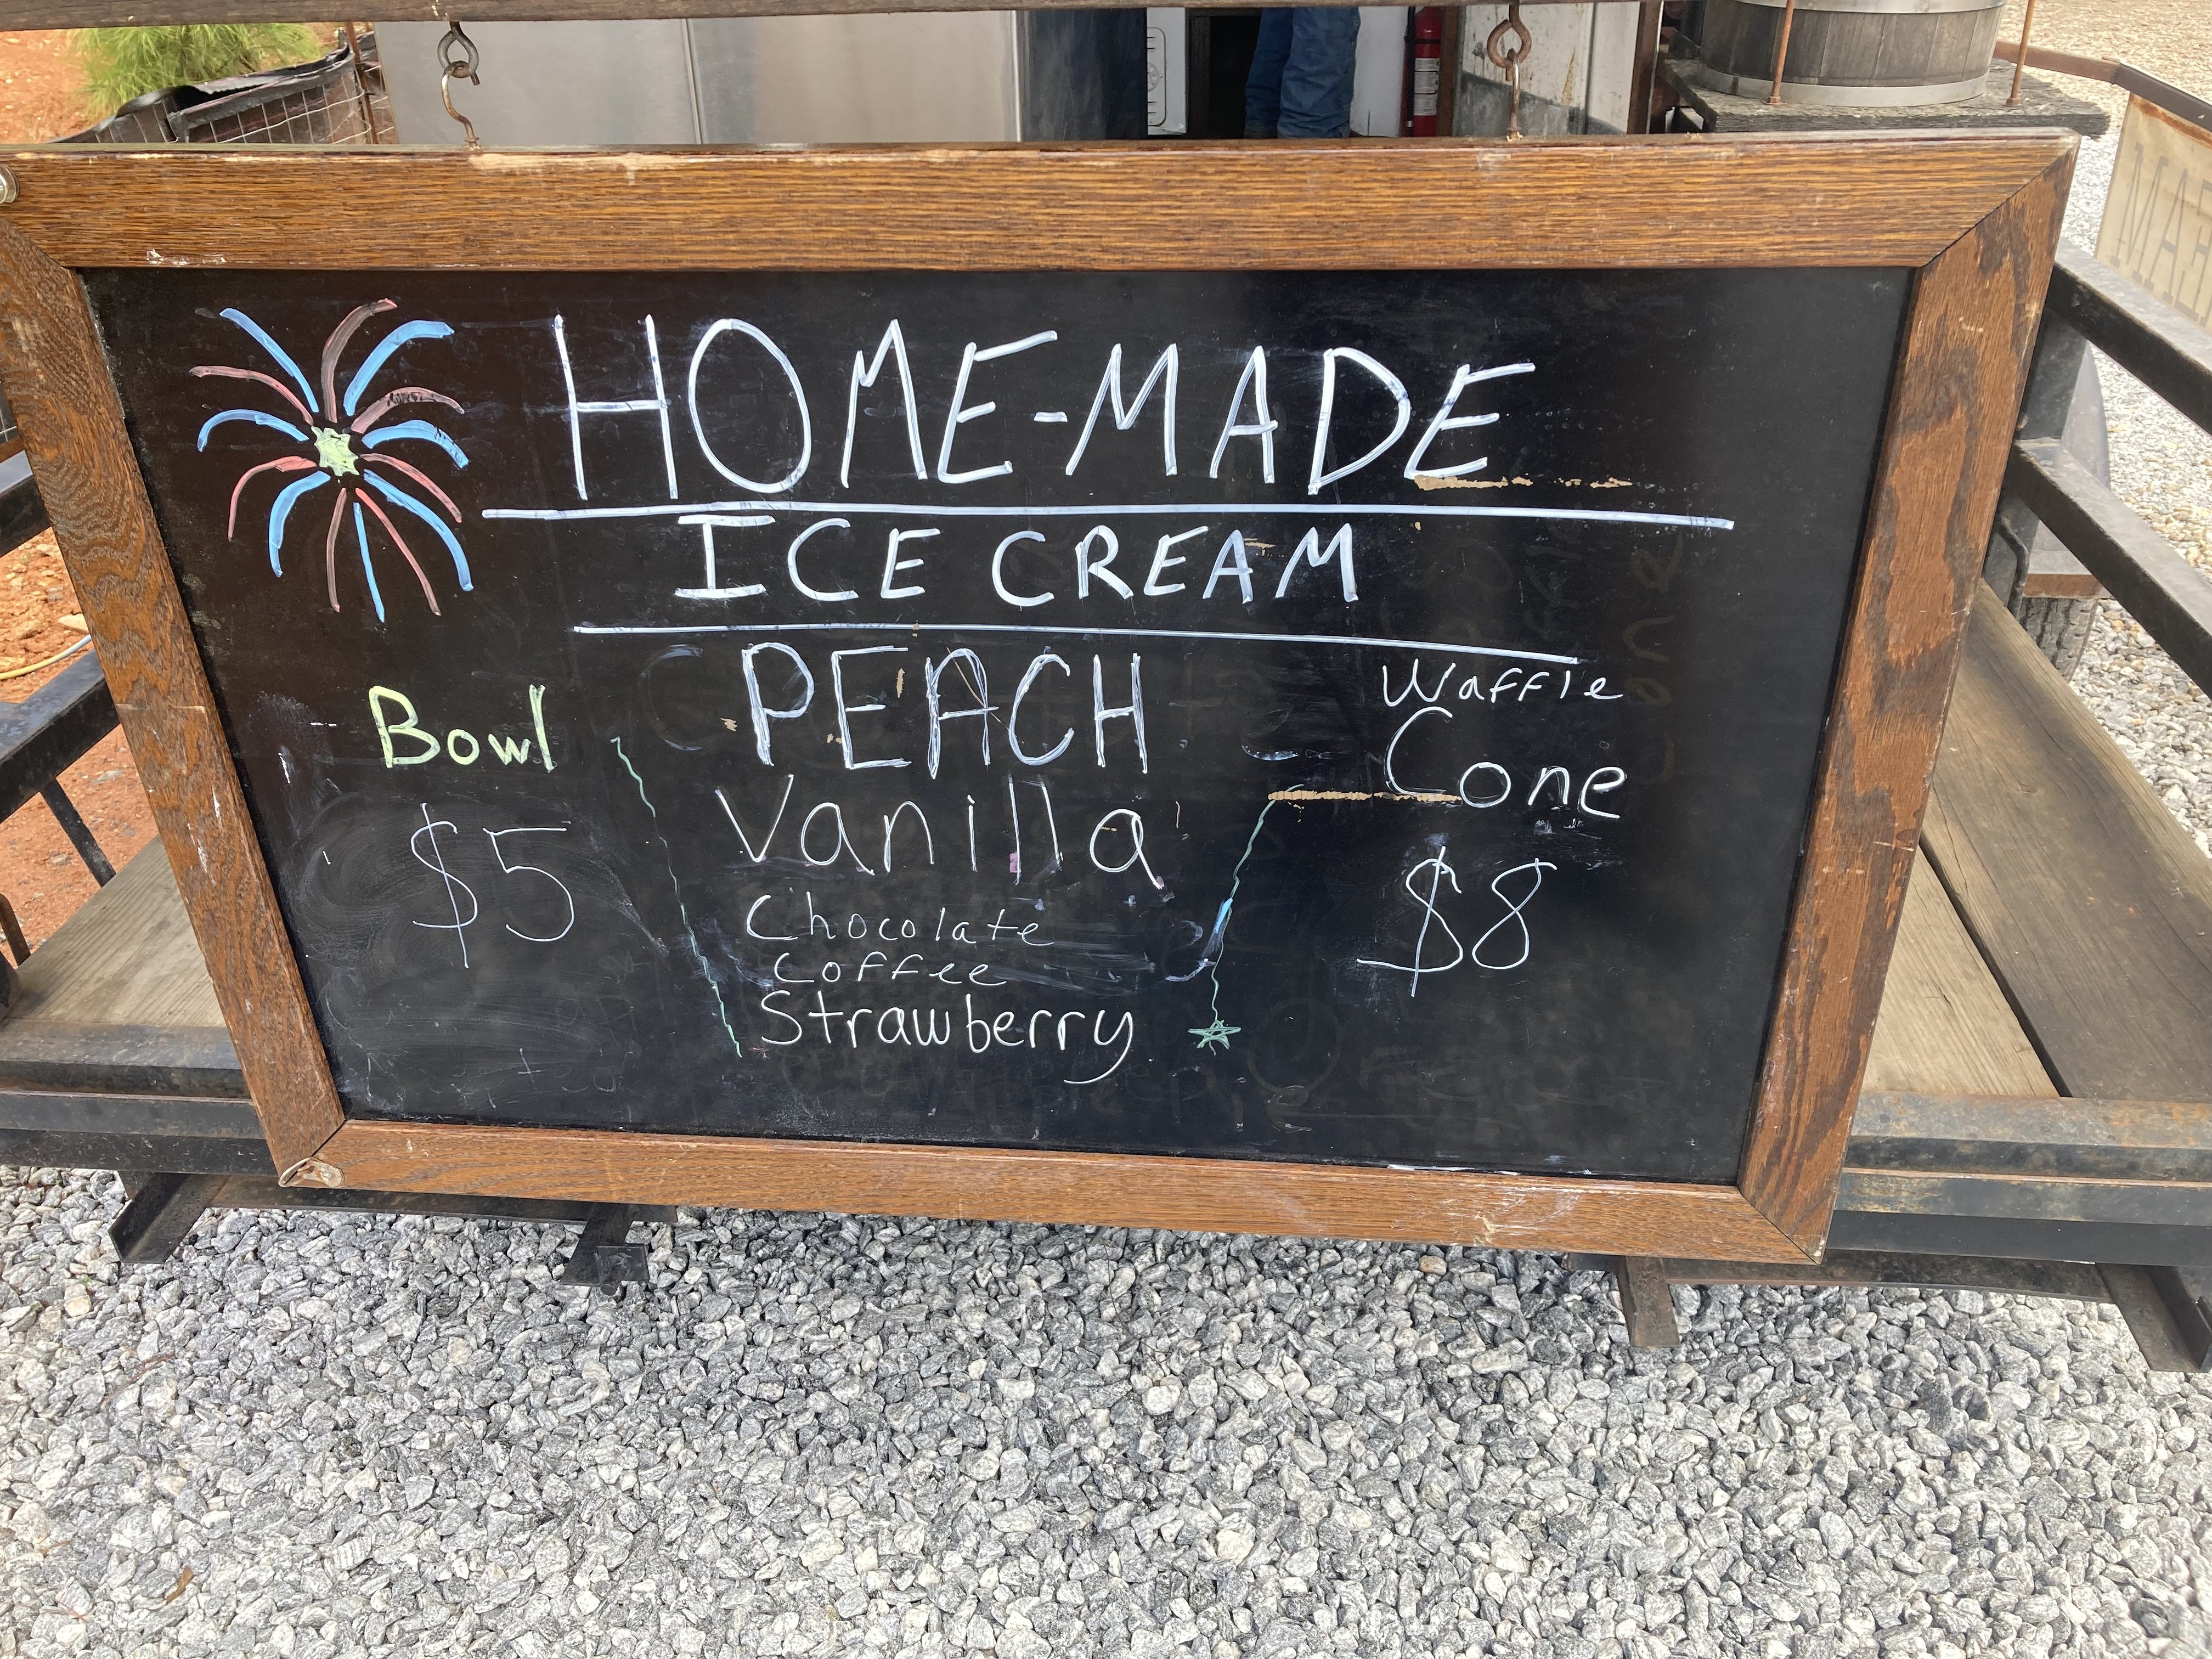 HOME-MADE
ICE CREAM
PEACH
Vanilla
Chocolate
Coffee
Strawberry
Bowl
$5
Waffle
Cone
$8